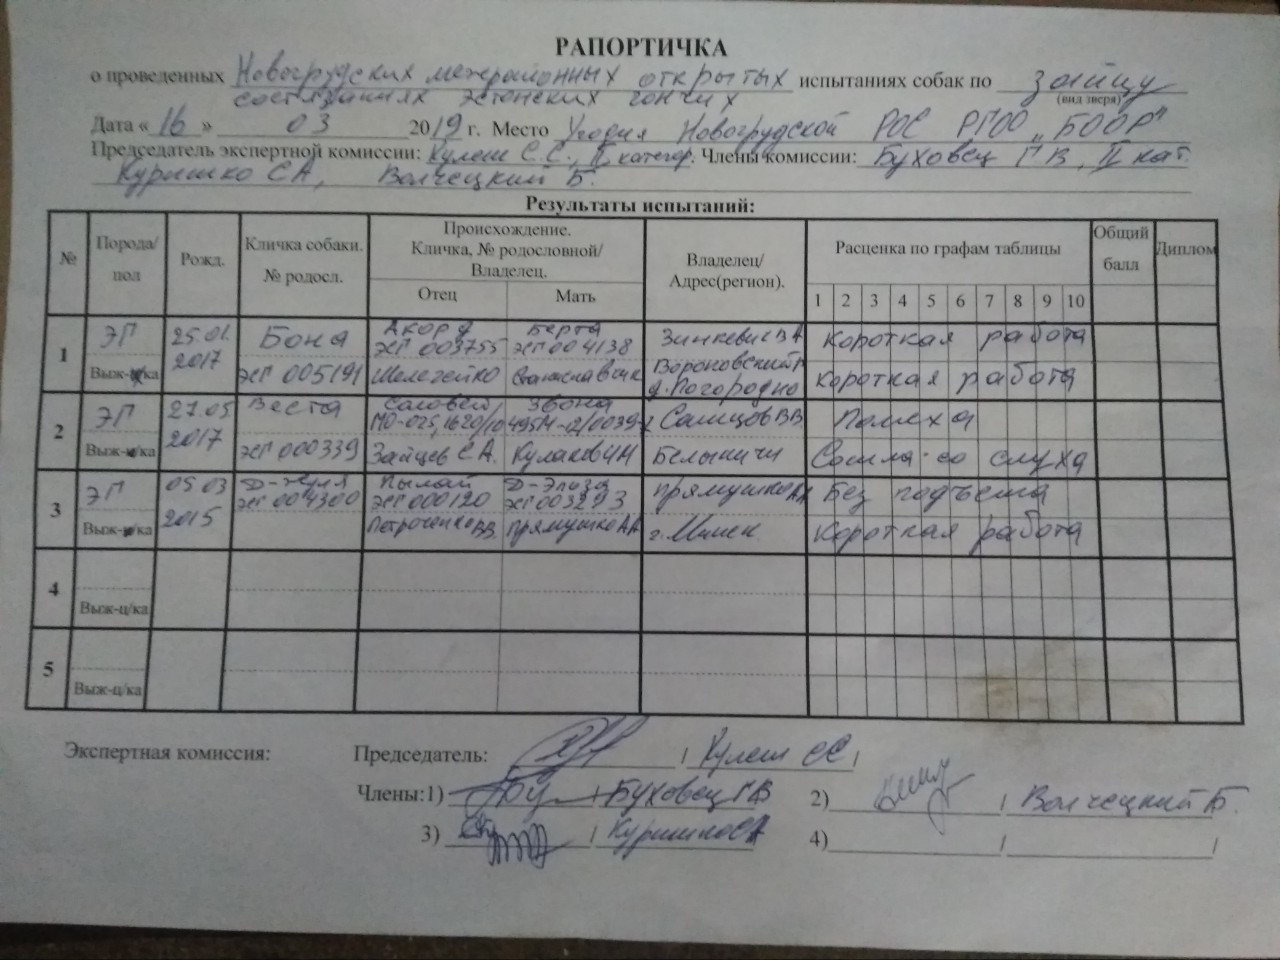 РАПОРТИЧКА
о проведенных Новогрудских межрайонных открытых испытаниях собак по зайцу
состязаниях эстонских гончих
(вид зверя)
Дата « 16 » 03 2019 г. Место Угодия Новогрудской РОС РГОО „БООР"
Председатель экспертной комиссии: Кулеш С.С., II категор. Члены комиссии: Буховец Г В, II кат.
Куришко СА, Волчецкий Б.
Результаты испытаний:
№ Порода/ пол Рожд. Кличка собаки. № родосл. Происхождение. Кличка, № родословной/ Владелец. Владелец/ Адрес(регион). Расценка по графам таблицы Общий балл Диплом
Отец Мать 1 2 3 4 5 6 7 8 9 10
1 ЭГ 25.01. 2017 Бона Акорд Берта Зинкевич ВА короткая работа
ЭХГ 003755 ЭХГ 004138
Выж-ц/ка ЭХГ 005191 Шелегейко Вороновский р короткая работа
д. Погородно
2 ЭГ 27.05 2017 Веста Соловей Звона Самцов ВВ Помеха
МО-025,1620/10
Выж-ц/ка ЭХГ 000339 Зайцев С.А. Кулакович Белыничи Сошла со слуха
3 ЭГ 05 03 2015 Пылай Д-Элиза Прямушко АА Без подъема
ЭХГ 004300 ЭХГ 000120 ЭХГ 003293
Выж-ц/ка Петроченко ВВ. Прямушко АА г. Минск короткая работа
4 Выж-ц/ка
5 Выж-ц/ка
Экспертная комиссия: Председатель: / Кулеш СС /
Члены:1) / Буховец ГВ 2) / Волчецкий Б.
3) / Куришко СА 4) / /